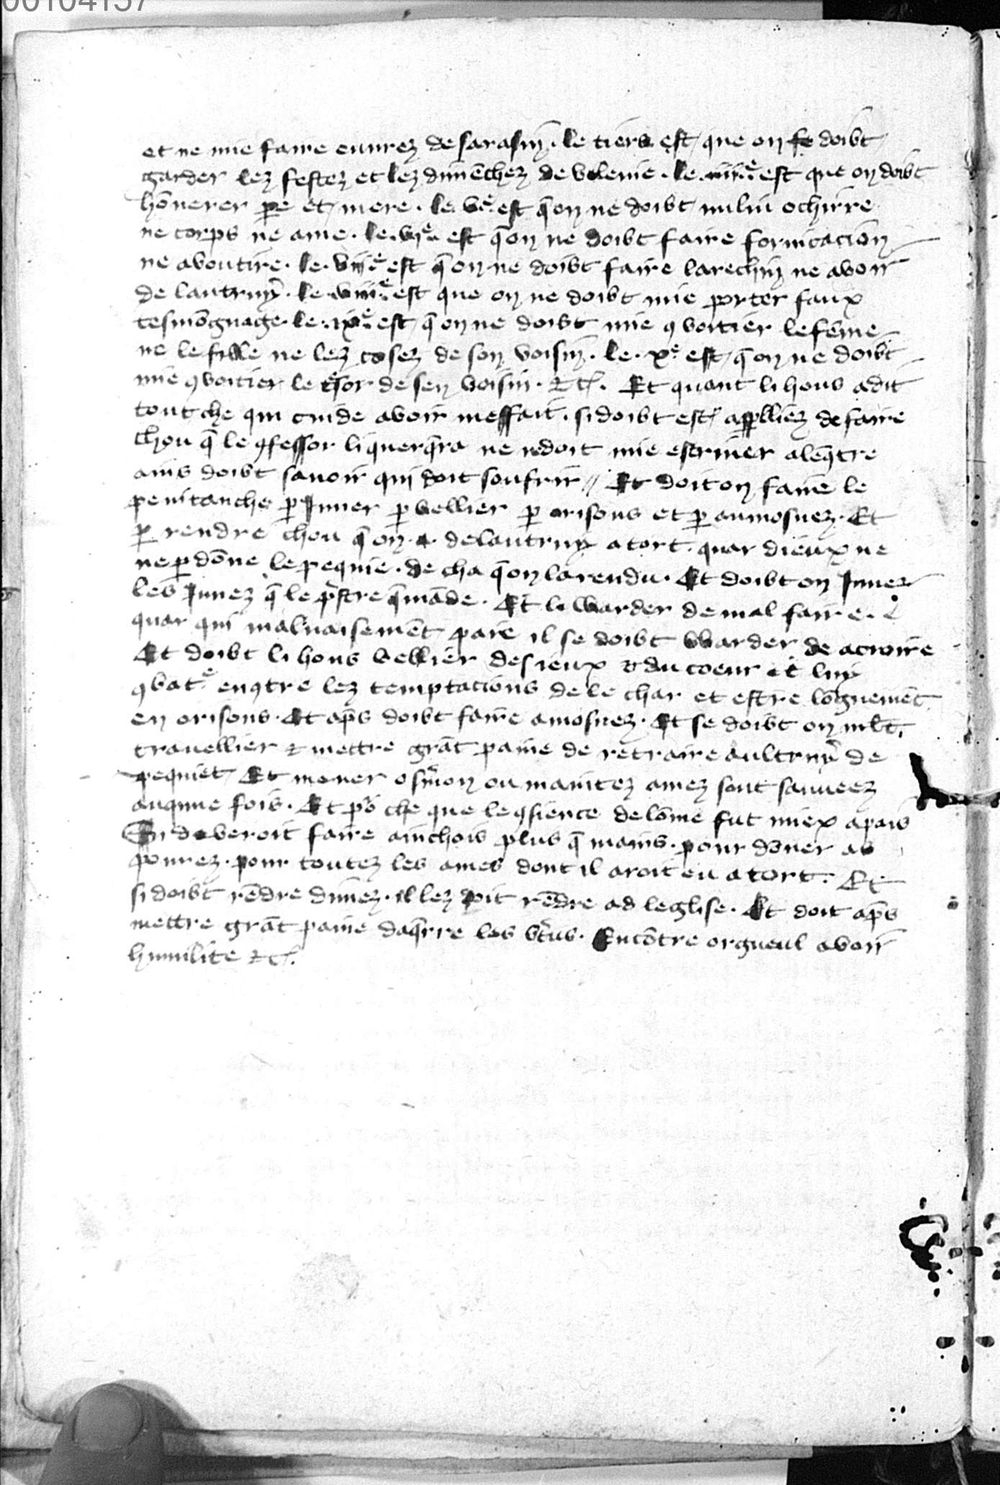 00104137
et ne mie faire euurez de sarasin. le tiers est que on se doibt
garder lez festez et lez dimenchez de vilenie. le .iiii.e est que on doibt
hõnerer pere et mere. le .ve. est q̃ on ne doibt nului ochirre
ne corps ne ame. le .vie. est q̃ on ne doibt faire fornicacion
ne avoutire. le .viie. est q̃ on ne doibt faire larechin ne avoir
de lautruy. le .viiie. est que on ne doibt mie porter faux
tesmõgnage. le .ixe. est q̃ on ne doibt mie ꝯvoitier le fẽme
ne le fille ne lez cosez de son voisin. le .xe. est q̃ on ne doibt
mie ꝯvoitier le tr̃sor de sen voisin. etc. Et quant li hons a dit
tout che qui cuide avoir meffait. si doibt estre de faire
chou q̃ le ꝯfessor li querq̃ra ne ne doit mie alẽꝯtre
ains doibt savoir qui doit soufrir // Et doit on faire le
penitanche ꝑ Juner ꝑ vellier ꝑ orisons et ꝑ aumosnez. Et
ꝑ rendre chou q̃ on a de lautruy a tort. quar dieux ne
ne ꝑdõne le pequie. de cha q̃ on la rendu. Et doibt on Juner
les Junez q̃ le p̃stre q̃mãde. Et li warder de mal faire.
quar qui malvaisemẽt il se doibt warder de
Et doibt li hons vellier des ieux et du coeur et luy
ꝯbatre enꝯtre lez temptacions de le char et estre lõguemẽt
en orisons. Et ap̃s doibt faire amosnez. Et se doibt on mlt
travellier et mettre grãt paine de retraire aultruy de
pequiet Et mener o sm̃on ou maintez amez sont sauveez
aucune fois. Et po che que le ꝯsience de lõme fut miex apais
Si deveroit faire ainchois plus q̃ mains. pour dõner as
povrez. pour toutez les ames dont il aroit eu a tort. Et
si doibt rẽdre dimez. il lez doit rẽdre ad leglise. Et doit ap̃s
mettre grãt paine daq̃rre les v̾tus. Encõtre orgueul avoir
humilite etc.